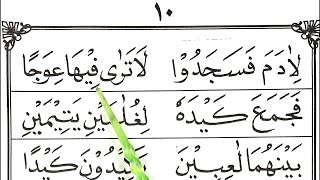 ١٠
لِاٰدَمَ فَسَجَدُوْا لَا تَرٰى فِيْهَا عِوَجًا
فَجَمَعَ كَيْدَهٗ لِغُلٰمَيْنِ يَتِيْمَيْنِ
بَيْنَهُمَا لٰعِبِيْنَ كَيْدًا